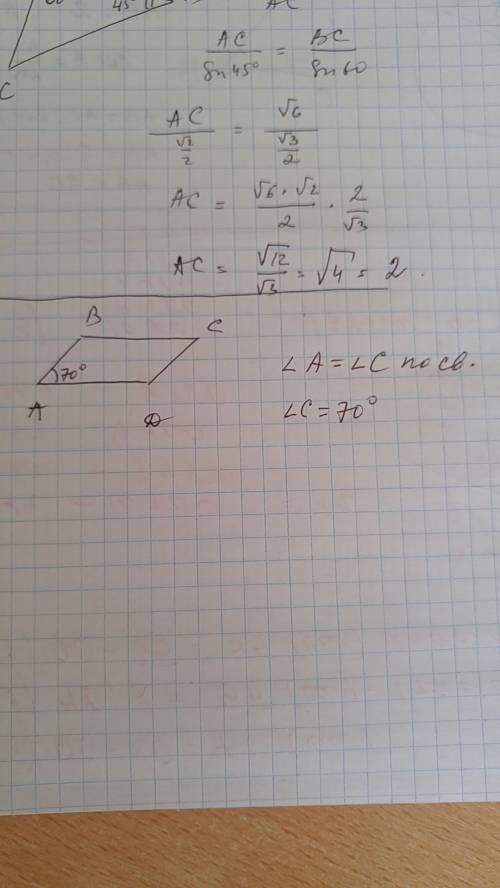 45°
AC
C
AC/sin45° = BC/sin60
AC/(√2/2) = √6/(√3/2)
AC = (√6 · √2)/2 · 2/√3
AC = √12/√3 = √4 = 2.
B C
70°
A D
∠A = ∠C по св.
∠C = 70°